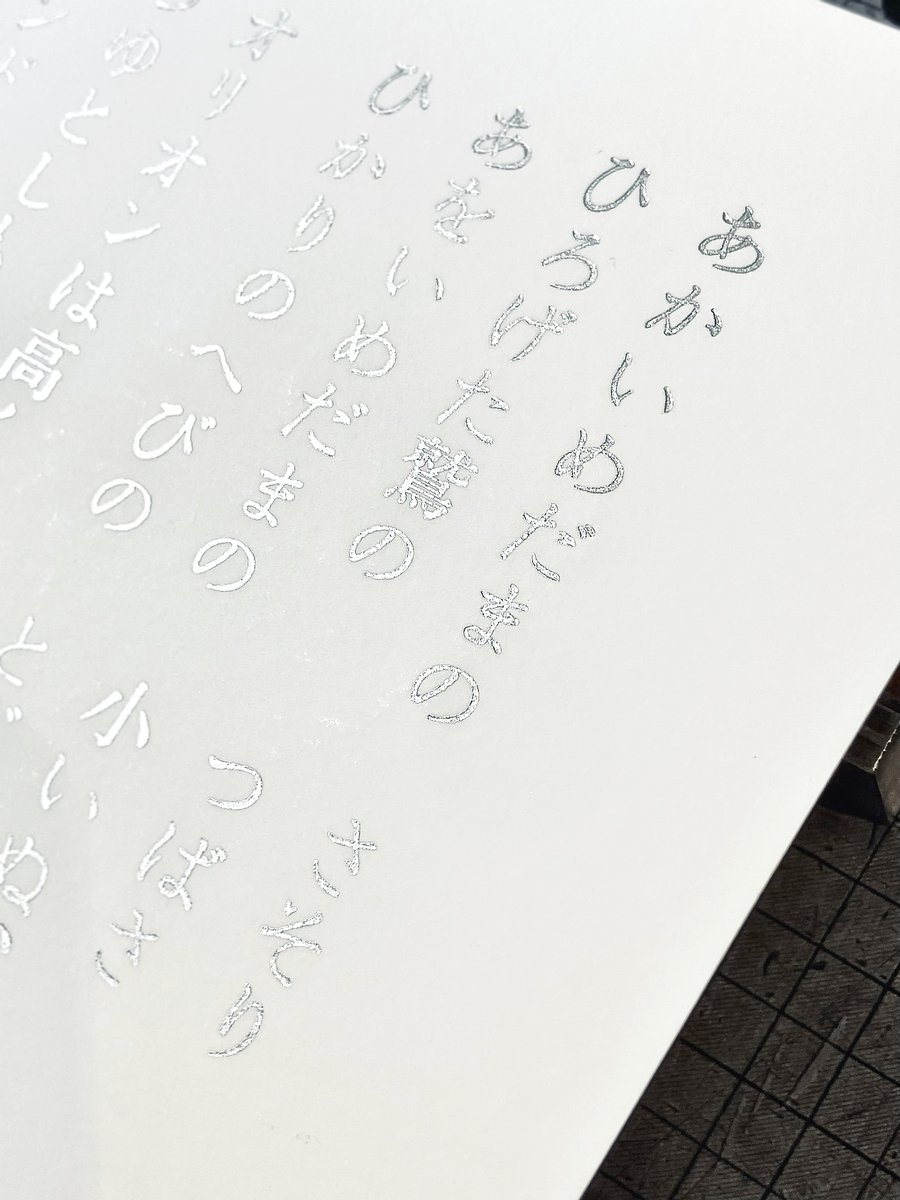 あかいめだまの　さそり
ひろげた鷲の　つばさ
あをいめだまの　小いぬ
ひかりのへびの　と
オリオンは高
ゆとし